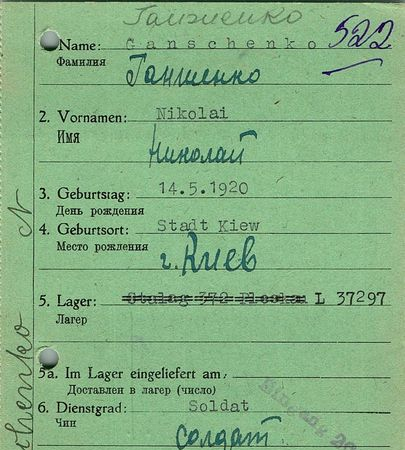 Ганженко
Name: Ganschenko 522
Фамилия
Ганженко
2. Vornamen: Nikolai
Имя
Николай
3. Geburtstag: 14.5.1920
День рождения
4. Geburtsort: Stadt Kiew
Место рождения
г. Киев
5. Lager: Stalag 372 L 37297
Лагерь
5a. Im Lager eingeliefert am:
Доставлен в лагерь (число)
6. Dienstgrad: Soldat
Чин
солдат